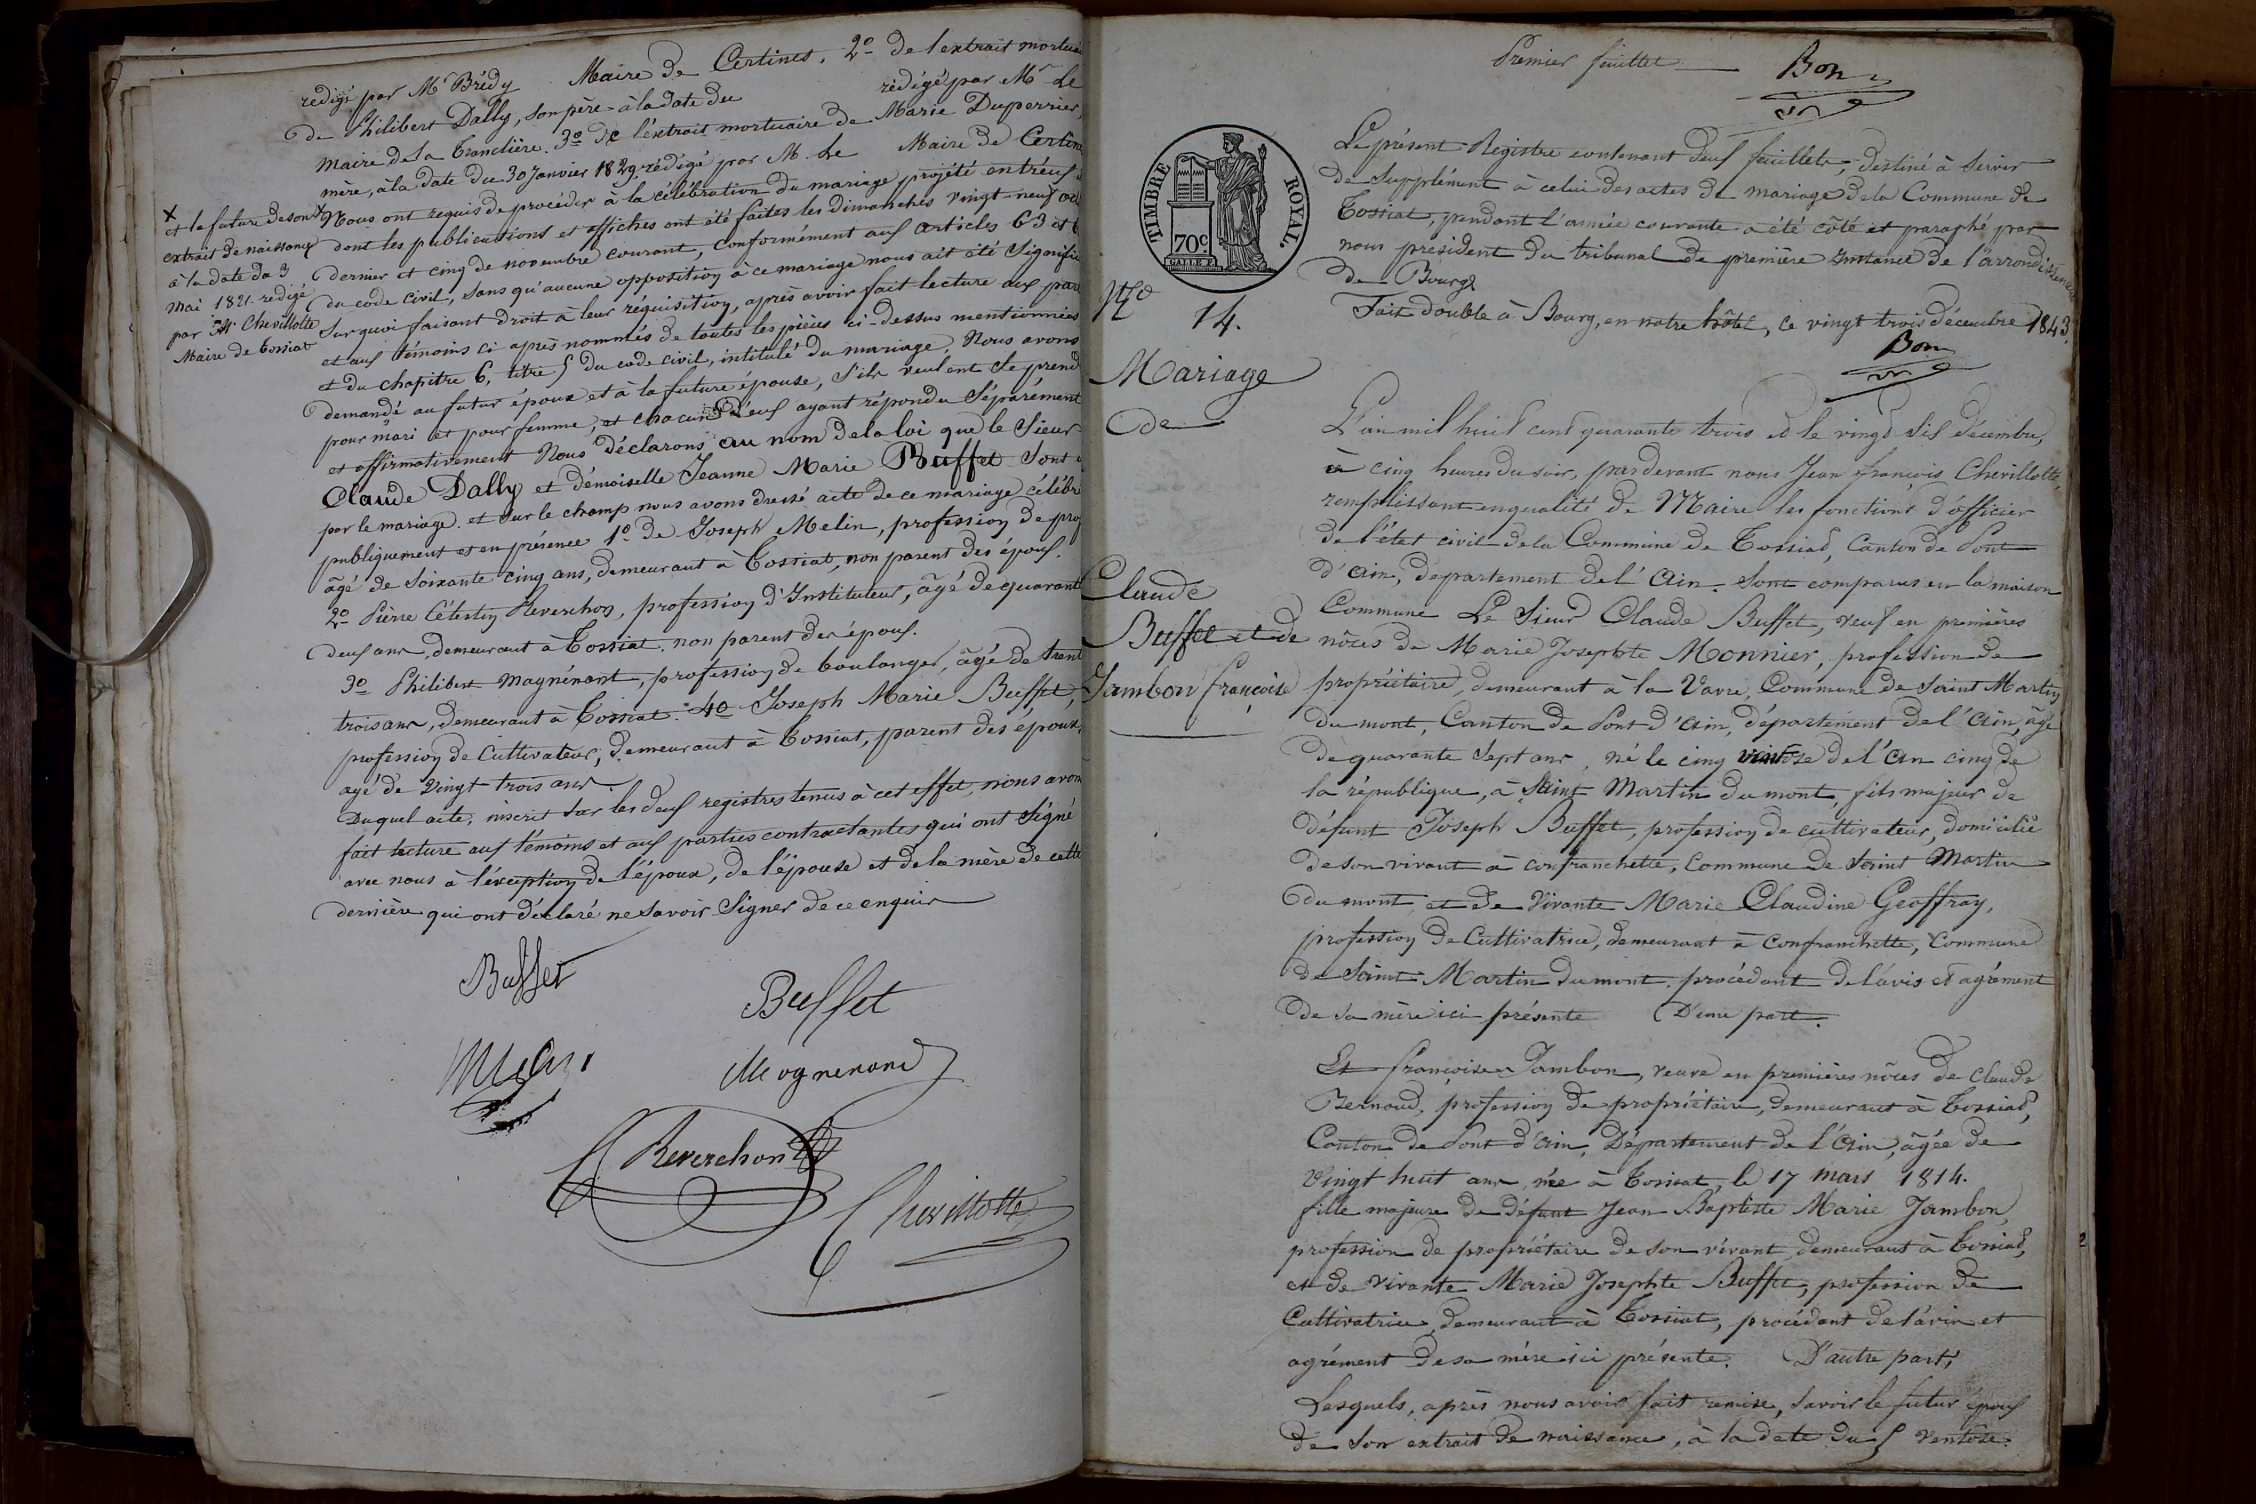 redigé par Mr Brédy Maire de Certines. 2o de l'extrait mortuai
de Philibert Dally, son père à la date du rédigé par Mr le
Maire de la tranclière. 3o de l'extrait mortuaire de Marie Duperrier,
mère, à la date du 30 Janvier 1829 rédigé par M. le Maire de Certine
Nous ont requis de procéder à la célébration du mariage projété entr'eux
dont les publications et affiches ont été faites les dimanches vingt-neuf oct
dernier et cinq de novembre courant, conformément aux articles 63 et
du code civil, sans qu'aucune opposition à ce mariage nous ait été signifié
Sur quoi faisant droit à leur réquisition, après avoir fait lecture aux par
et aux témoins ci après nommés de toutes les pièces ci-dessus mentionnées
et du chapitre 6, titre 5 du code civil, intitulé du mariage, Nous avons
demandé au futur époux et à la future épouse, s'ils veulent se prend
pour mari et pour femme, et chacun d'eux ayant répondu séparément
et affirmativement Nous déclarons au nom de la loi que le Sieur
Claude Dally et démoiselle Jeanne Marie Buffet sont u
par le mariage. et sur le champ nous avons dressé acte de ce mariage célébré
publiquement et en présence 1o de Joseph Melin, profession de pro
âgé de soixante cinq ans, demeurant à Tossiat, non parent des époux.
2o Pièrre Célestin Reverchon, profession d'Instituteur, âgé de quarante
deux ans, demeurant à Tossiat, non parent des époux.
3o Philibert Magnénant, profession de boulanger, âgé de trent
trois ans, demeurant à Tossiat. 4o Joseph Marie Buffet,
profession de Cultivateur, demeurant à Tossiat, parent des époux,
agé de vingt trois ans.
Duquel acte, inscrit sur les deux registres tenus à cet effet, nous avons
fait lecture aux témoins et aux parties contractantes qui ont signé
avec nous à l'éxception de l'époux, de l'épouse et de la mère de cette
dernière qui ont déclaré ne savoir signer de ce enquis
x
et la future de son
extrait de naissance
à la date du 3
mai 1821 redigé
par Mr Chevillotte
Maire de Tossiat
Buffet
Buffet
Melin
Magnenand
Reverchon
Chevillotte
Premier feuillet Bon
Le présent Registre contenant deux feuillets, destiné à servir
de Supplément à celui des actes de mariage de la Commune de
Tossiat, pendant l'année courante a été côté et paraphé par
nous président du tribunal de première Instance de l'arrondissement
de Bourg
Fait double à Bourg, en notre hôtel, ce vingt trois décembre 1843.
Bon
TIMBRE ROYAL
70c.
No 14.
Mariage
de
Claude
Buffet et de
Jambon françoise
L'an mil huit cent quarante trois et le vingt six décembre,
à cinq heures du soir, pardevant nous Jean françois Chevillotte,
remplissant en qualité de Maire les fonctions d'officier
de l'état civil de la Commune de Tossiat, Canton de Pont
d'Ain, département de l'Ain. Sont comparus en la maison
Commune Le Sieur Claude Buffet, veuf en premières
nôces de Marie Josephte Monnier, profession de
propriétaire, demeurant à la Vavre, Commune de Saint Martin
du mont, Canton de Pont d'Ain, département de l'Ain, âgé
de quarante sept ans, né le cinq ventose de l'An cinq de
la république, à Saint Martin du mont, fils majeur de
défunt Joseph Buffet, profession de cultivateur, domicilié
de son vivant à confranchette, Commune de Saint Martin
du mont, et de vivante Marie Claudine Geoffray,
profession de Cultivatrice, demeurant à confranchette, Commune
de Saint Martin du mont, procédant de l'avis et agrément
de sa mère ici présente D'une part.
Et françoise Jambon, veuve en premières nôces de Claude
Bernoud, profession de propriétaire, demeurant à Tossiat,
Canton de Pont d'Ain, Département de l'Ain, âgée de
vingt huit ans, née à Tossiat, le 17 mars 1814.
fille majeure de défunt Jean Baptiste Marie Jambon,
profession de propriétaire de son vivant demeurant à Tossiat,
et de vivante Marie Josephte Buffet, profession de
Cultivatrice, demeurant à Tossiat, procédant de l'avis et
agrément de sa mère ici présente. D'autre part,
Lesquels, après nous avoir fait remise, savoir le futur époux
de son extrait de naissance, à la date du 5 ventôse